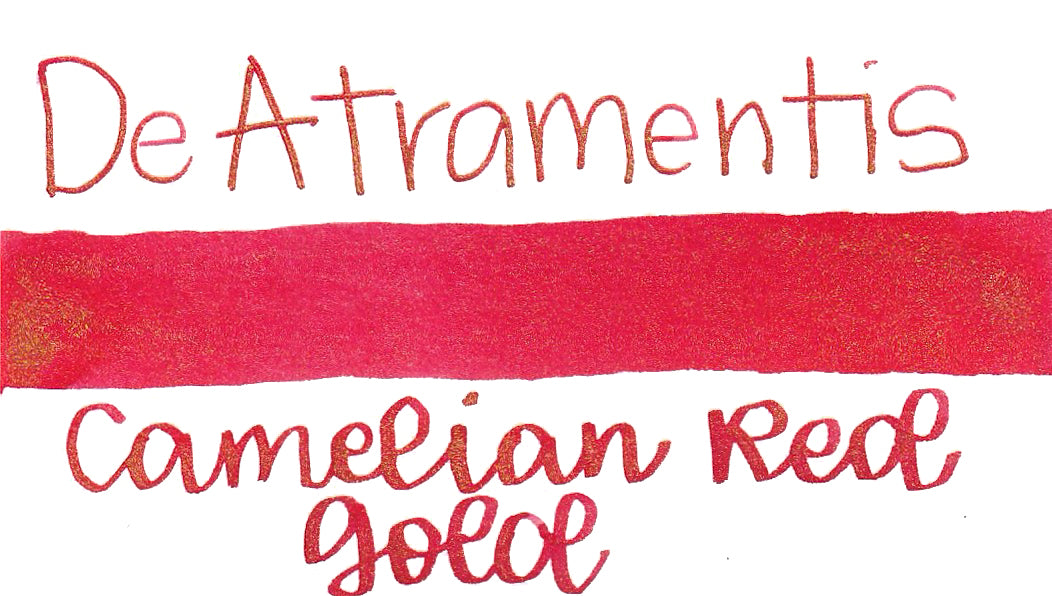 De Atramentis
Camelian Red
Gold